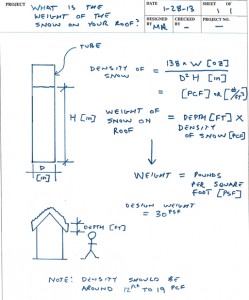 PROJECT
WHAT IS THE
WEIGHT OF THE
SNOW ON YOUR ROOF?
DATE
1-28-13
SHEET OF
1 1
DESIGNED BY
MR
CHECKED BY
-
PROJECT No.
-
TUBE
DENSITY OF SNOW = 138 × W [OZ] / D² H [IN]
= [PCF] OR [#/FT³]
H [IN]
WEIGHT OF SNOW ON ROOF = DEPTH [FT] × DENSITY OF SNOW [PCF]
D
[IN]
WEIGHT = POUNDS
PER SQUARE
FOOT [PSF]
DESIGN WEIGHT
= 30 PSF
DEPTH [FT]
NOTE: DENSITY SHOULD BE
AROUND 12 TO 19 PCF